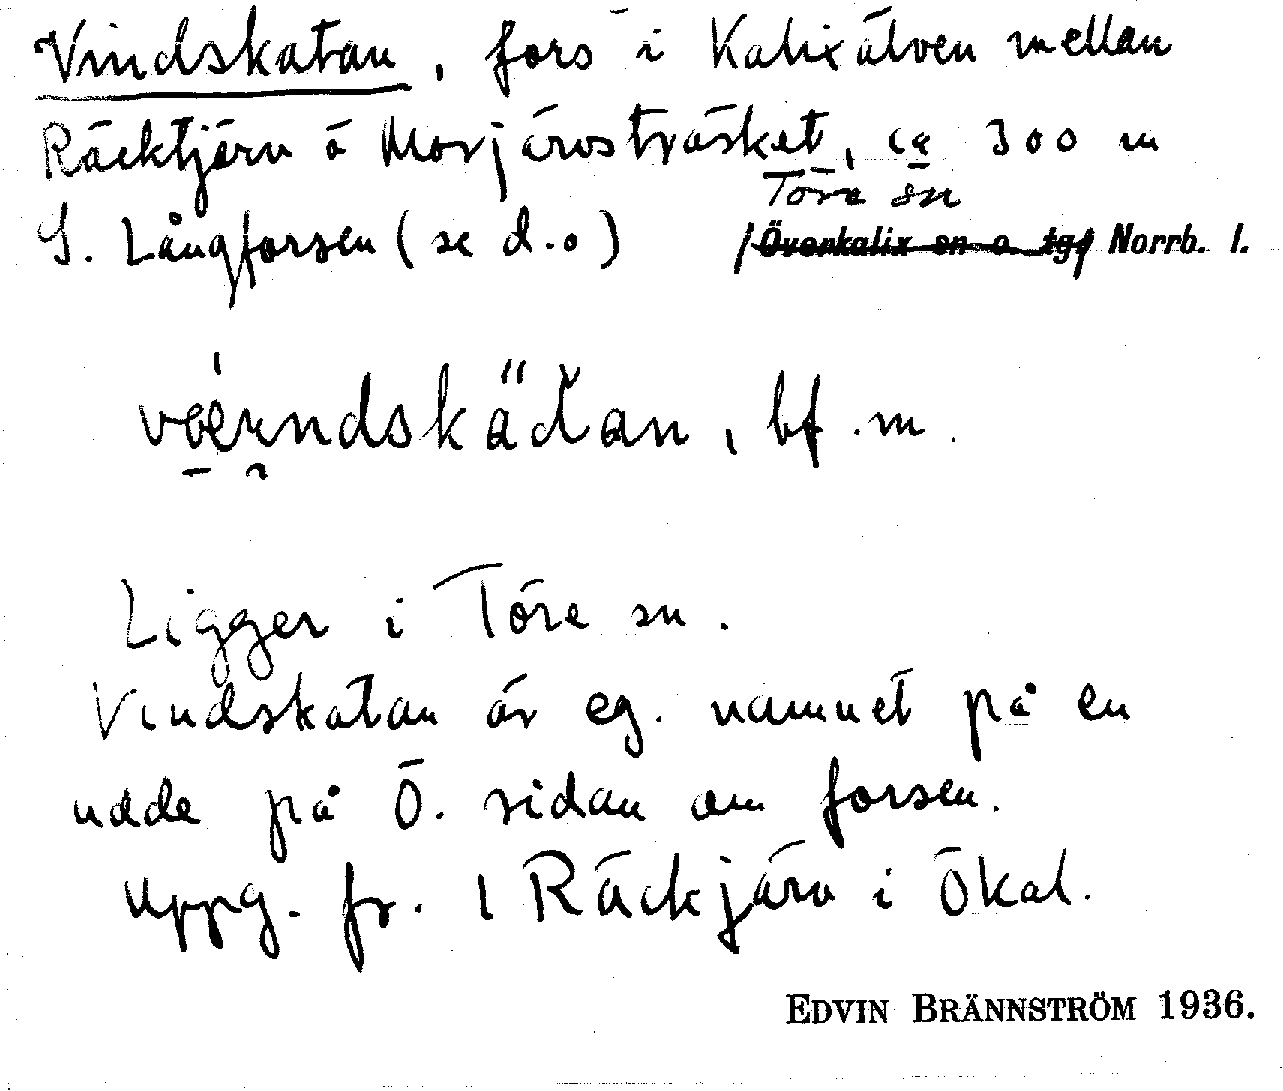 Vindskatan, fors i Kalixälven mellan
Räcktjärn o Morjärvsträsket, ca 300 m
Töre sn
S. Långforsen (se d.o) /Överkalix sn o. tg/ Norrb. l.
bf. m.
Ligger i Töre sn.
Vindskatan är eg. namnet på en
udde på Ö. sidan om forsen.
Uppg. fr. 1 Räckjärv i Ökal.
EDVIN BRÄNNSTRÖM 1936.